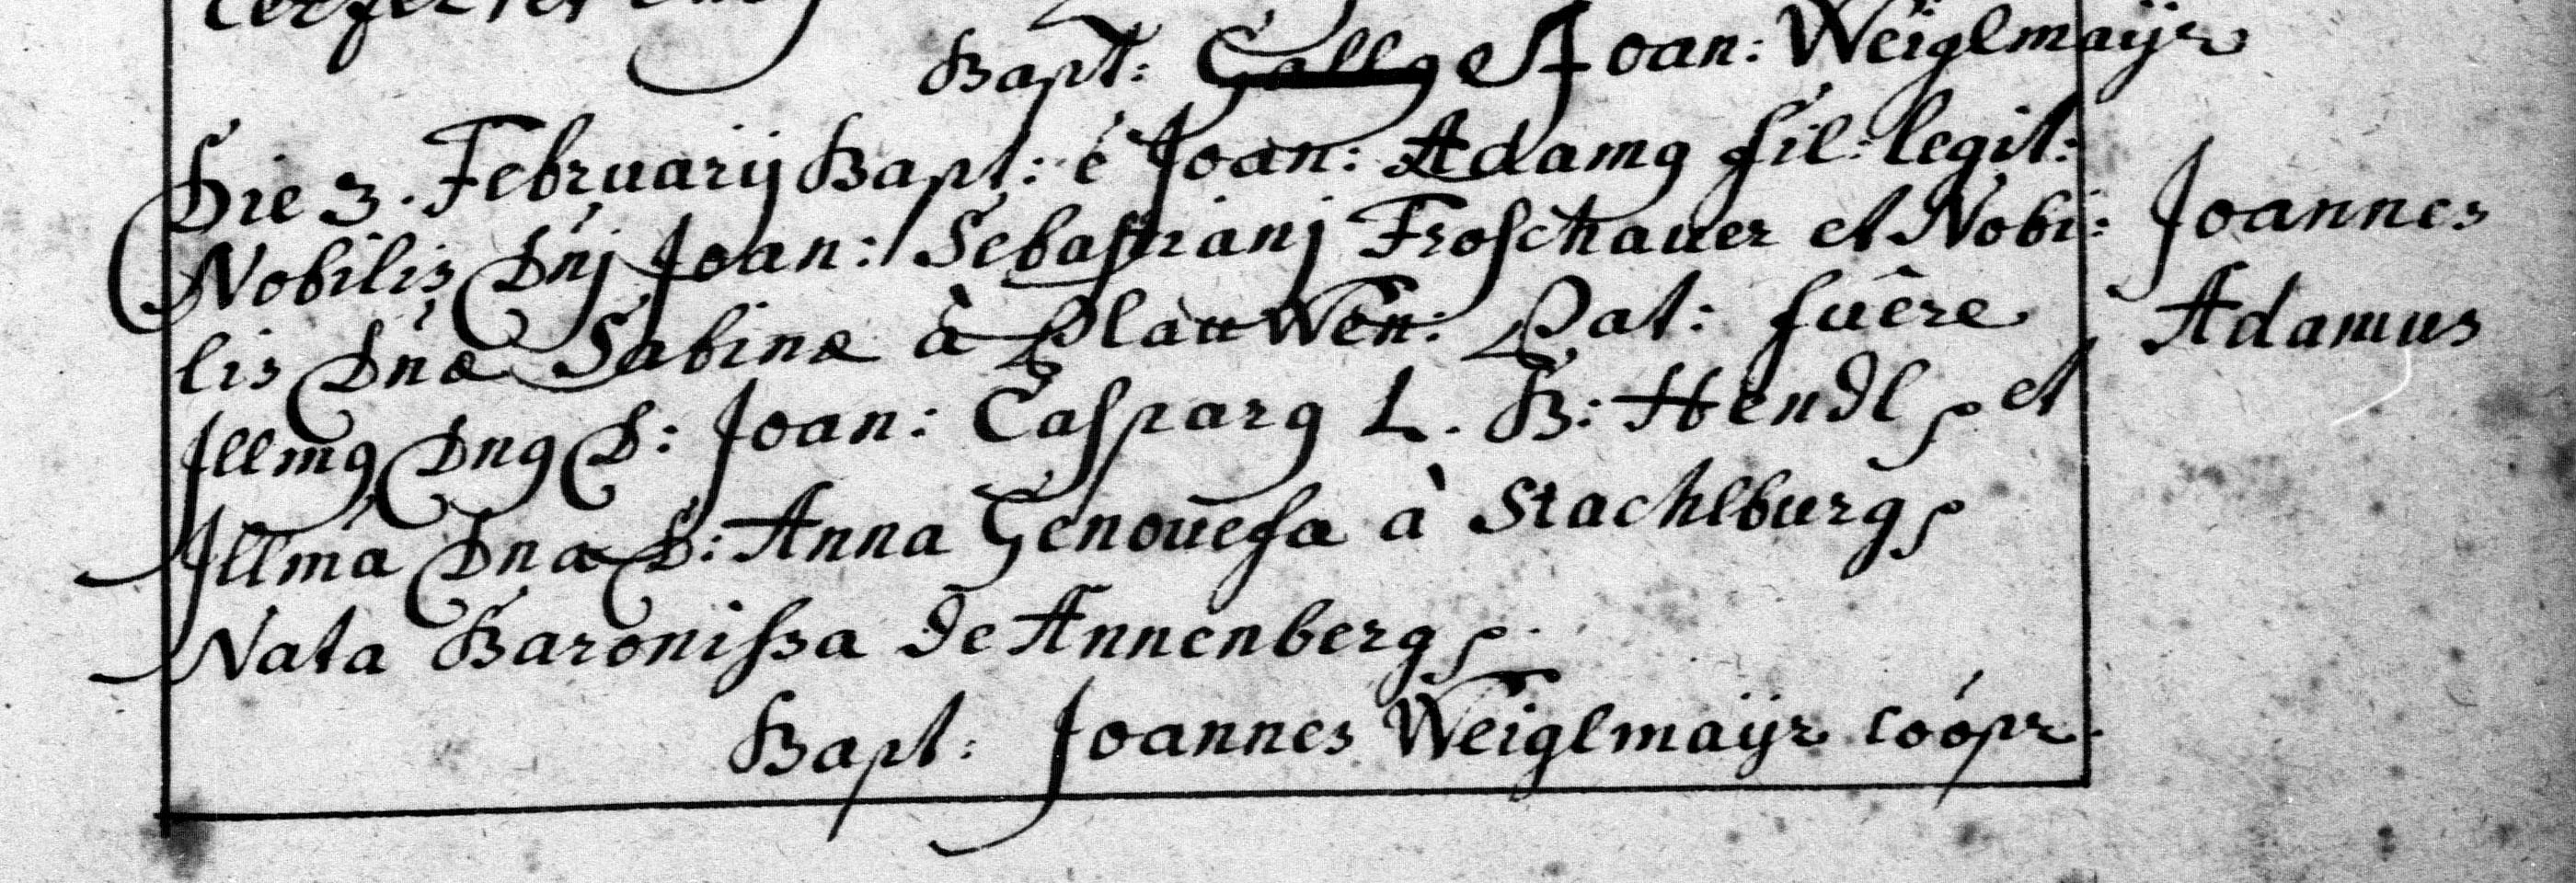 Bapt: Gallg Joan: Weiglmaÿr
Die 3. Februarij Bapt: é Joan: Adamg fil: legit:
Nobilis Dnj Joan: Sebastianj Froschauer et Nobi:
lis Dnæ Sabinæ à Plauwen: Pat: fuêre
Joannes
Adamus
Illmg Dng D: Joan: Casparg L. B: Hendl et
Illma Dna D: Anna Genouefa à Stachlburg
Nata Baronissa de Annenberg
Bapt: Joannes Weiglmaÿr coópr.